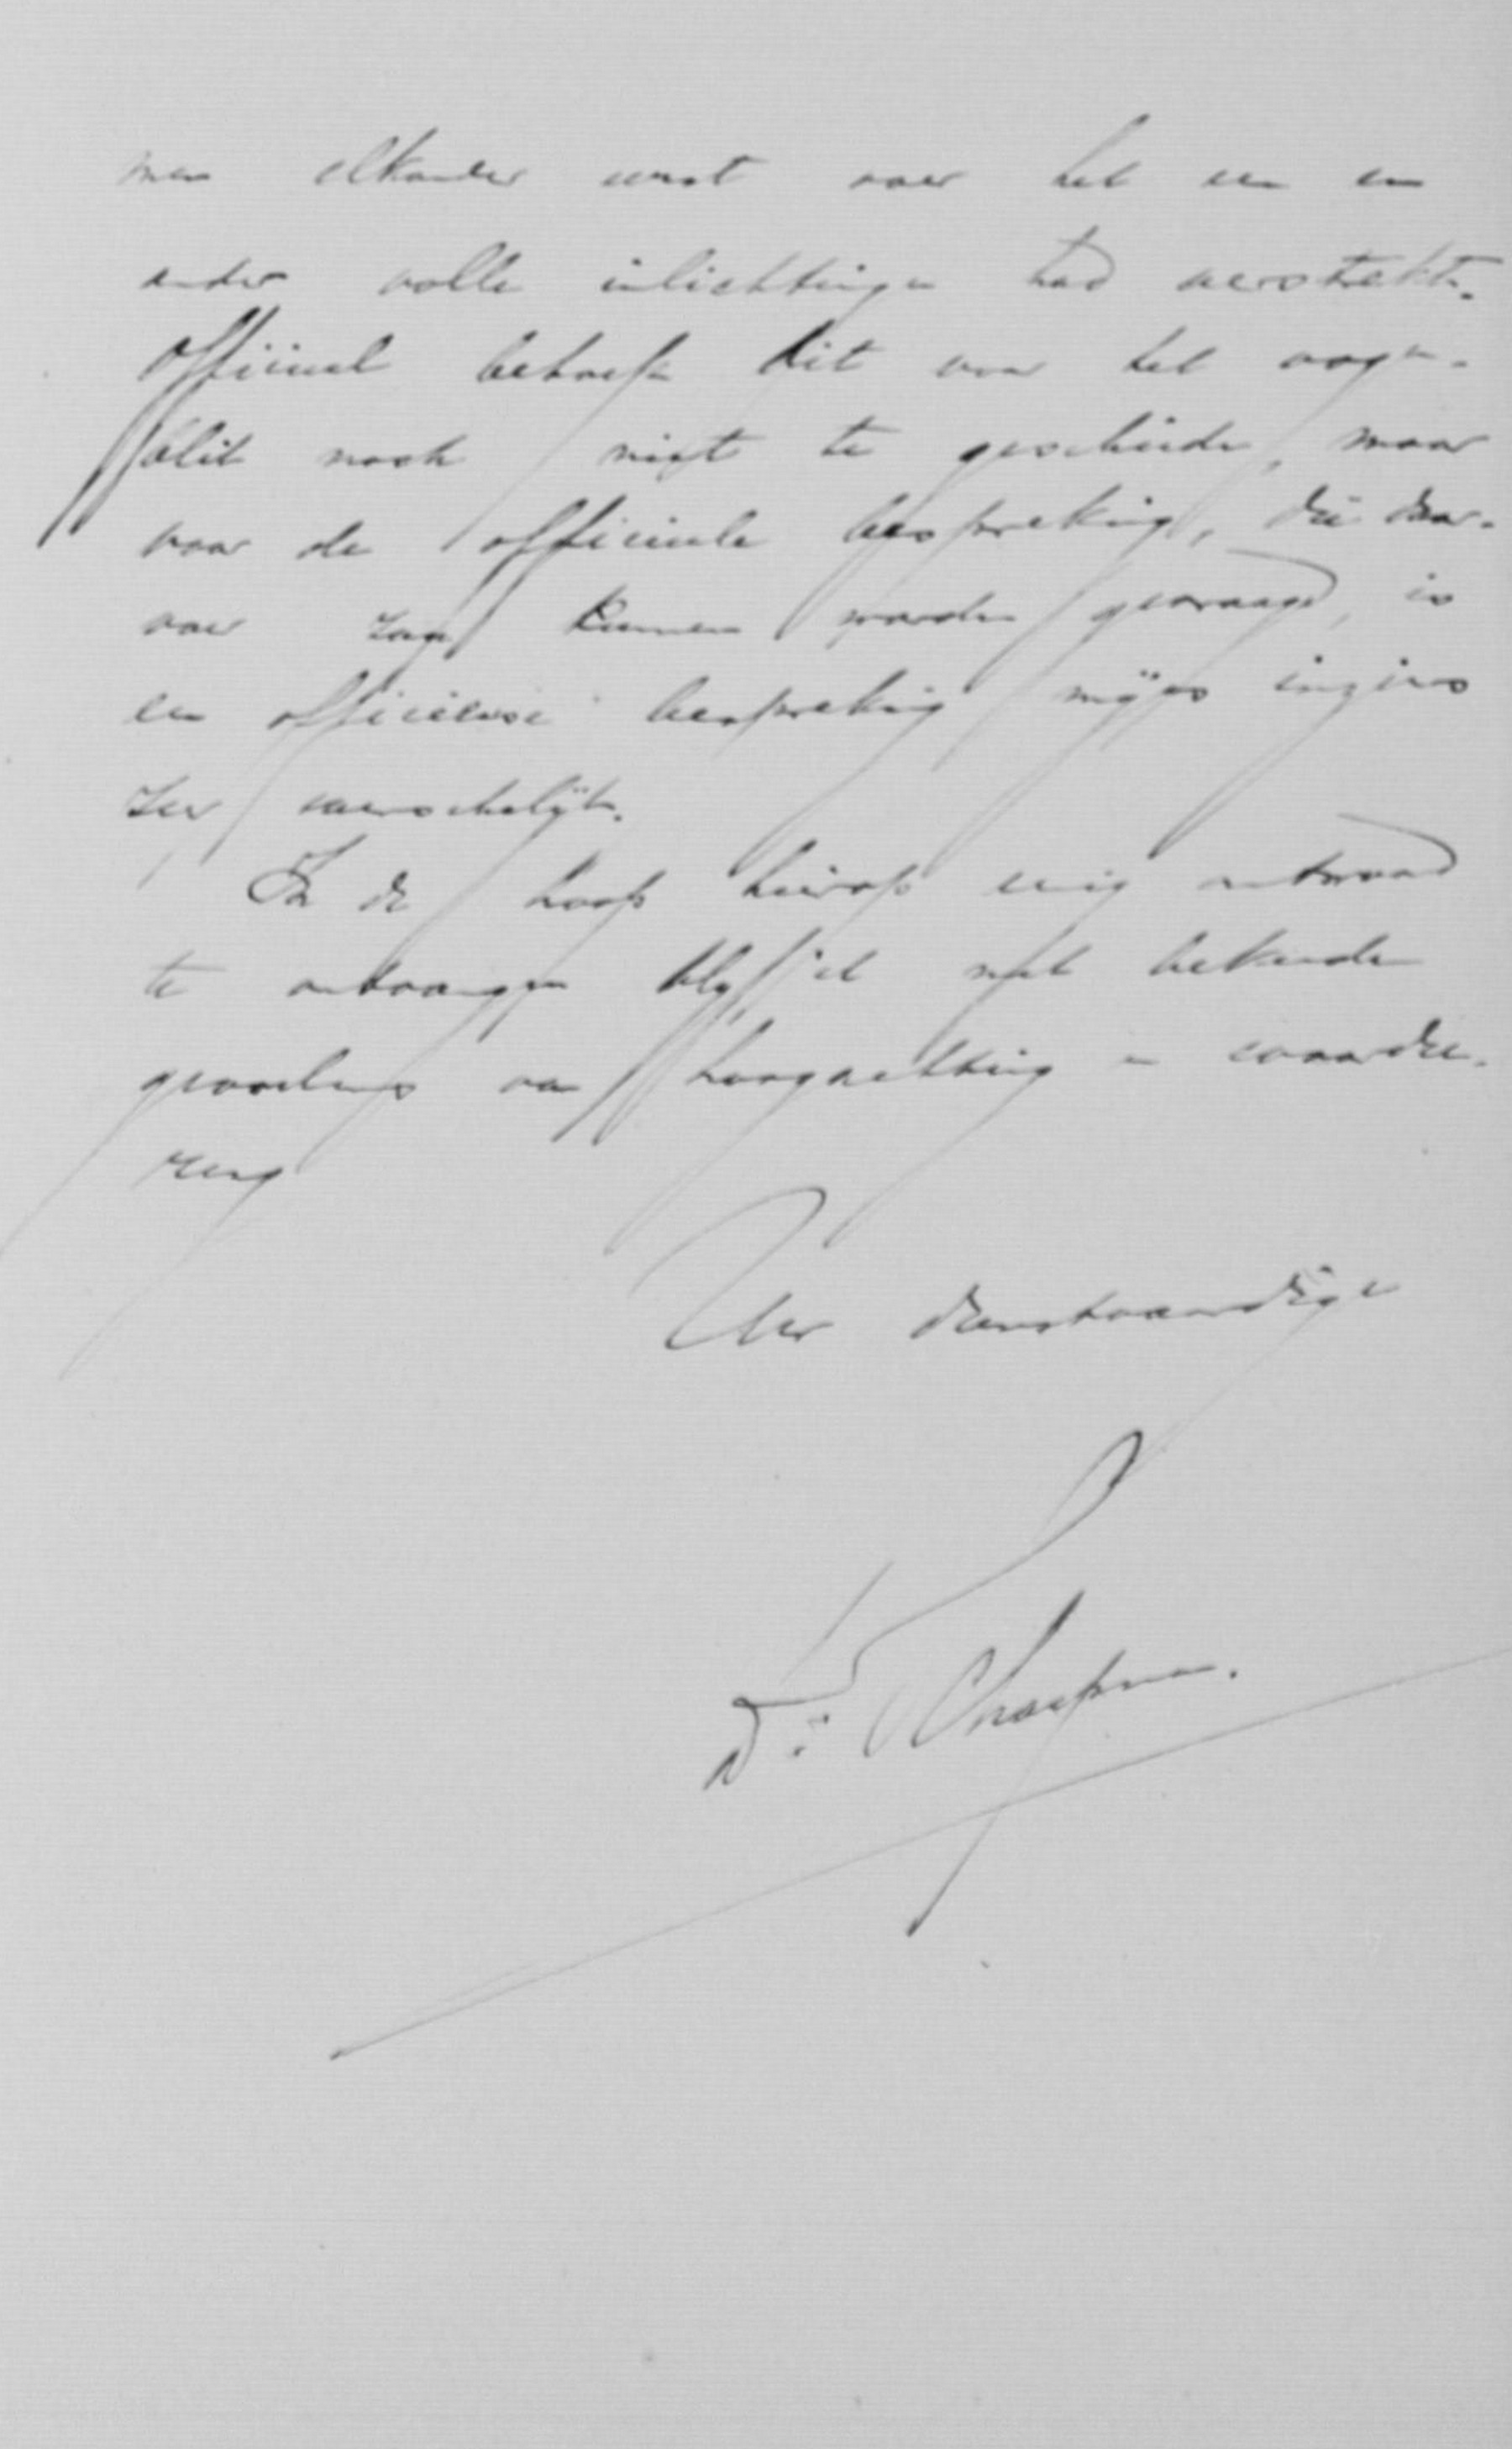 men elkander eerst over het een en
ander volle inlichtingen had verstrekt.
Officieel behoeft dit voor het oogen-
blik noch niet te geschieden, maar
voor de officieele bespreking, die daar-
over zou kunnen worden gevraagd, is
een officieuse bespreking mijns inziens
zeer wenschelijk.
In de hoop hierop eenig antwoord
te ontvangen blijf ik met bekende
gevoelens van hoogachting en waardee-
ring
Uw dienstvaardige
Dr. Schaepman.